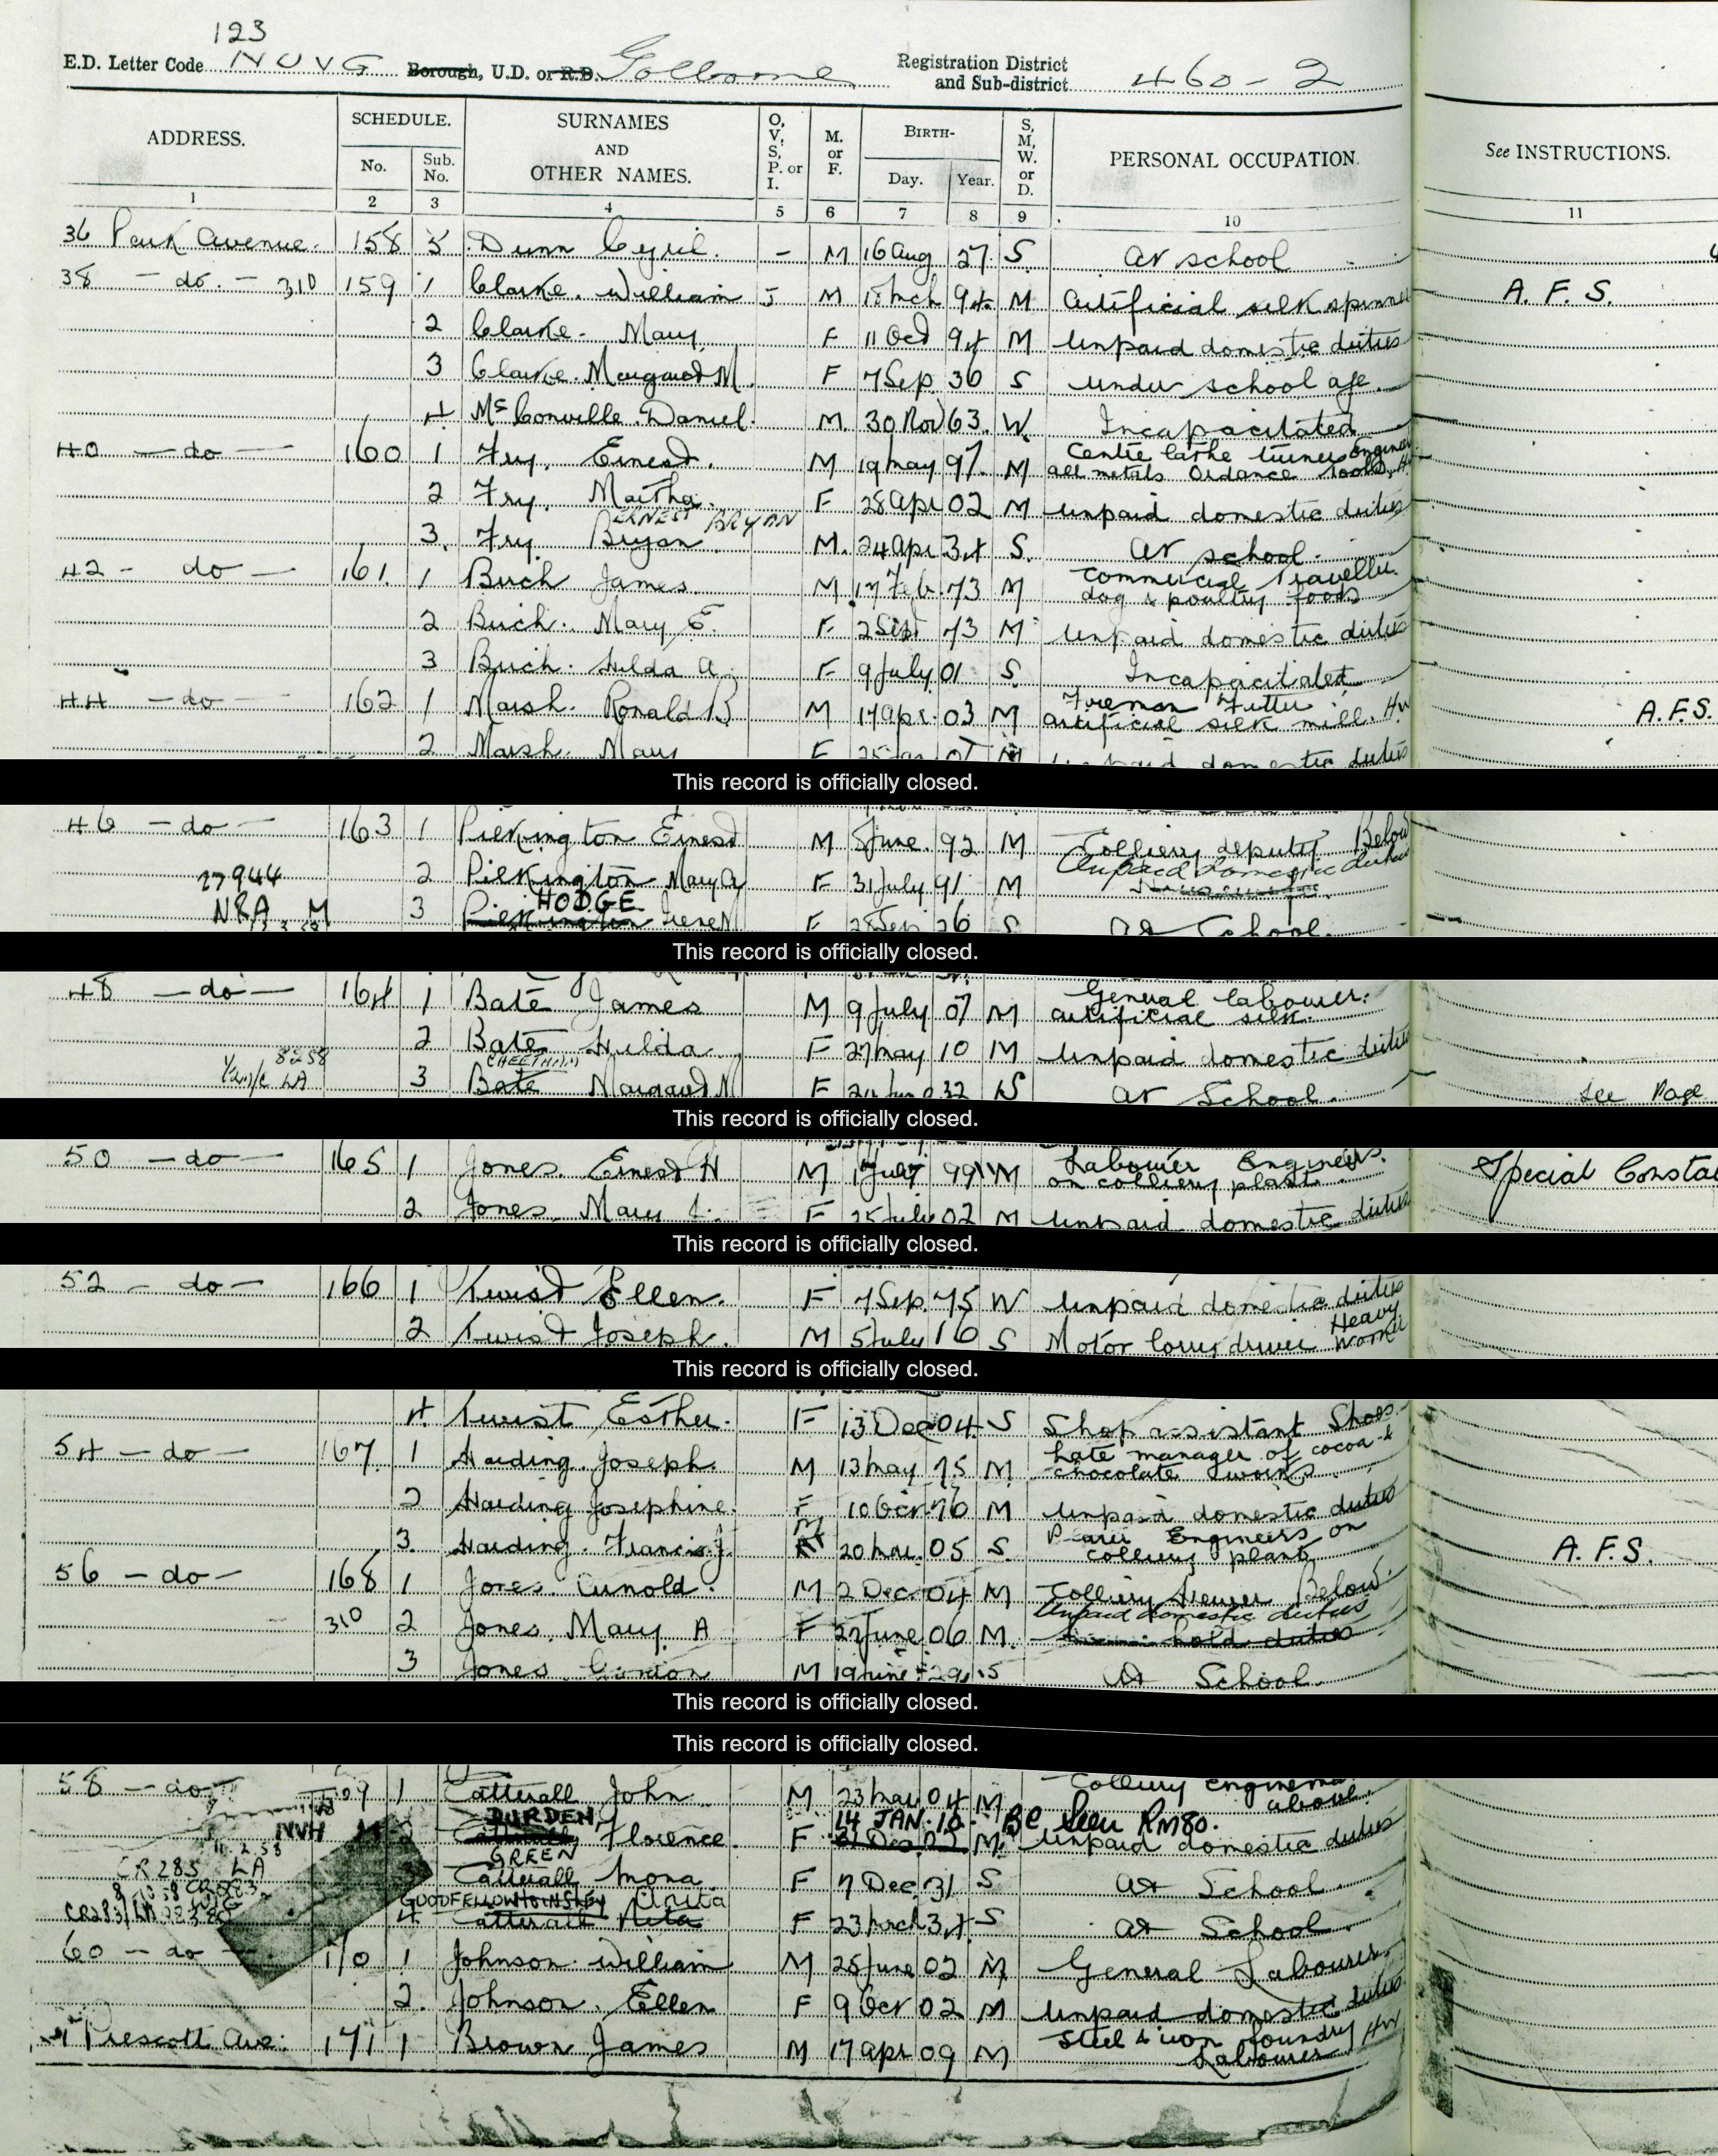 123
E.D. Letter Code NUVG Borough, U.D. or R.D. Golborne Registration District and Sub-district 460-2
ADDRESS. SCHEDULE. No. Sub. No. SURNAMES AND OTHER NAMES. O, V, S, P. or I. M. or F. BIRTH- Day. Year. S, M, W. or D. PERSONAL OCCUPATION. See INSTRUCTIONS.
1 2 3 4 5 6 7 8 9 10 11
36 Park Avenue. 158 5 Dunn Cyril. - M 16 Aug 27. S. at school
38 - do. - 310 159 1 Clarke. William M Mch 94. M Artificial silk spinner A. F. S.
2 Clarke. Mary F 11 Oct 94 M Unpaid domestic duties
3 Clarke. Margaret M. F 7 Sep 36 S under school age.
4 McConville. Daniel. M. 30 Nov 63. W. Incapacitated
40 - do - 160 1 Fry. Ernest. M 19 May 97. M Centre lathe turner Engineer
all metals Ordance tools. H
2 Fry. Martha. F 28 Apr 02 M unpaid domestic duties
ERNEST BRYAN
3. Fry. Bryan M. 24 Apr 34 S. at school.
42 - do - 161. 1 Burch James M 17 Feb. 73 M Commercial Traveller.
dog & poultry foods
2 Burch. Mary E. F 2 Sept 73 M Unpaid domestic duties
3 Burch. Hilda A. F 9 July 01 S Incapacitated
44 - do - 162 1 Marsh. Ronald B M 17 Apr. 03 M Foreman Fitter
artificial silk mill. Hw A.F.S.
2 Marsh. Mary F 25 M unpaid domestic duties
This record is officially closed.
46 - do - 163 1 Pilkington Ernest M 5 June. 92 M Colliery deputy Below
27944 2 Pilkington Mary A F 31 July 91 M Unpaid domestic duties
HODGE
NRA. M 3 Pilkington Irene M F 28 Sep 26 S At School.
This record is officially closed.
48 - do - 164 1 Bate James M 9 July 07 M General labourer.
artificial silk.
2 Bate Hilda F 27 May 10 M Unpaid domestic duties
8258 CHEETHAM
LA 3 Bate Margaret M F 24 32 S At School. See Page
This record is officially closed.
50 - do - 165 1 Jones. Ernest H M 1 July 99 M Labourer Engineers.
on colliery plant Special Consta
2 Jones. Mary F 25 July 02 M Unpaid domestic duties
This record is officially closed.
52 - do - 166 1 Twist Ellen. F 7 Sep. 75 W Unpaid domestic duties
2 Twist Joseph. M 5 July 16 S Motor lorry driver Heavy Worker
This record is officially closed.
4. Twist Esther. F 13 Dec 04 S Shop assistant Shoes
54 - do - 167. 1 Harding. Joseph. M 13 May 75 M. Late manager of cocoa &
chocolate works.
2 Harding Josephine. F 10 Oct 76 M Unpaid domestic duties
3. Harding. Francis J. M 20 Mar. 05 S. Engineers on
colliery plant A. F. S.
56 - do - 168 1 Jones. Arnold. M 2 Dec. 04 M Colliery Hewer Below
310 2 Jones. Mary A F 27 June 06 M. Unpaid domestic duties
hold duties
3 Jones Gordon M 19 June 29 S At School.
This record is officially closed.
This record is officially closed.
58 - do - 169 1 Catterall John M 23 Mar 04 M Colliery engineman
above.
DURDEN 14 JAN. 10 - BC seen RM80.
NVH 2 Catterall Florence. F 31 Dec. 09 M. Unpaid domestic duties
11.2.58 GREEN
CR 285 LA 3 Catterall Mona F 7 Dec 31 S At School
GOODFELLOW Anita
CR283 4 Catterall Rita F 23 Mch 34 S At School.
60 - do - 170 1 Johnson. William M 25 June 02 M General Labourer.
2. Johnson. Ellen F 9 Oct 02 M Unpaid domestic duties
Prescott Ave: 171 1 Brown James M 17 Apr 09 M Steel & iron foundry Hw
Labourer